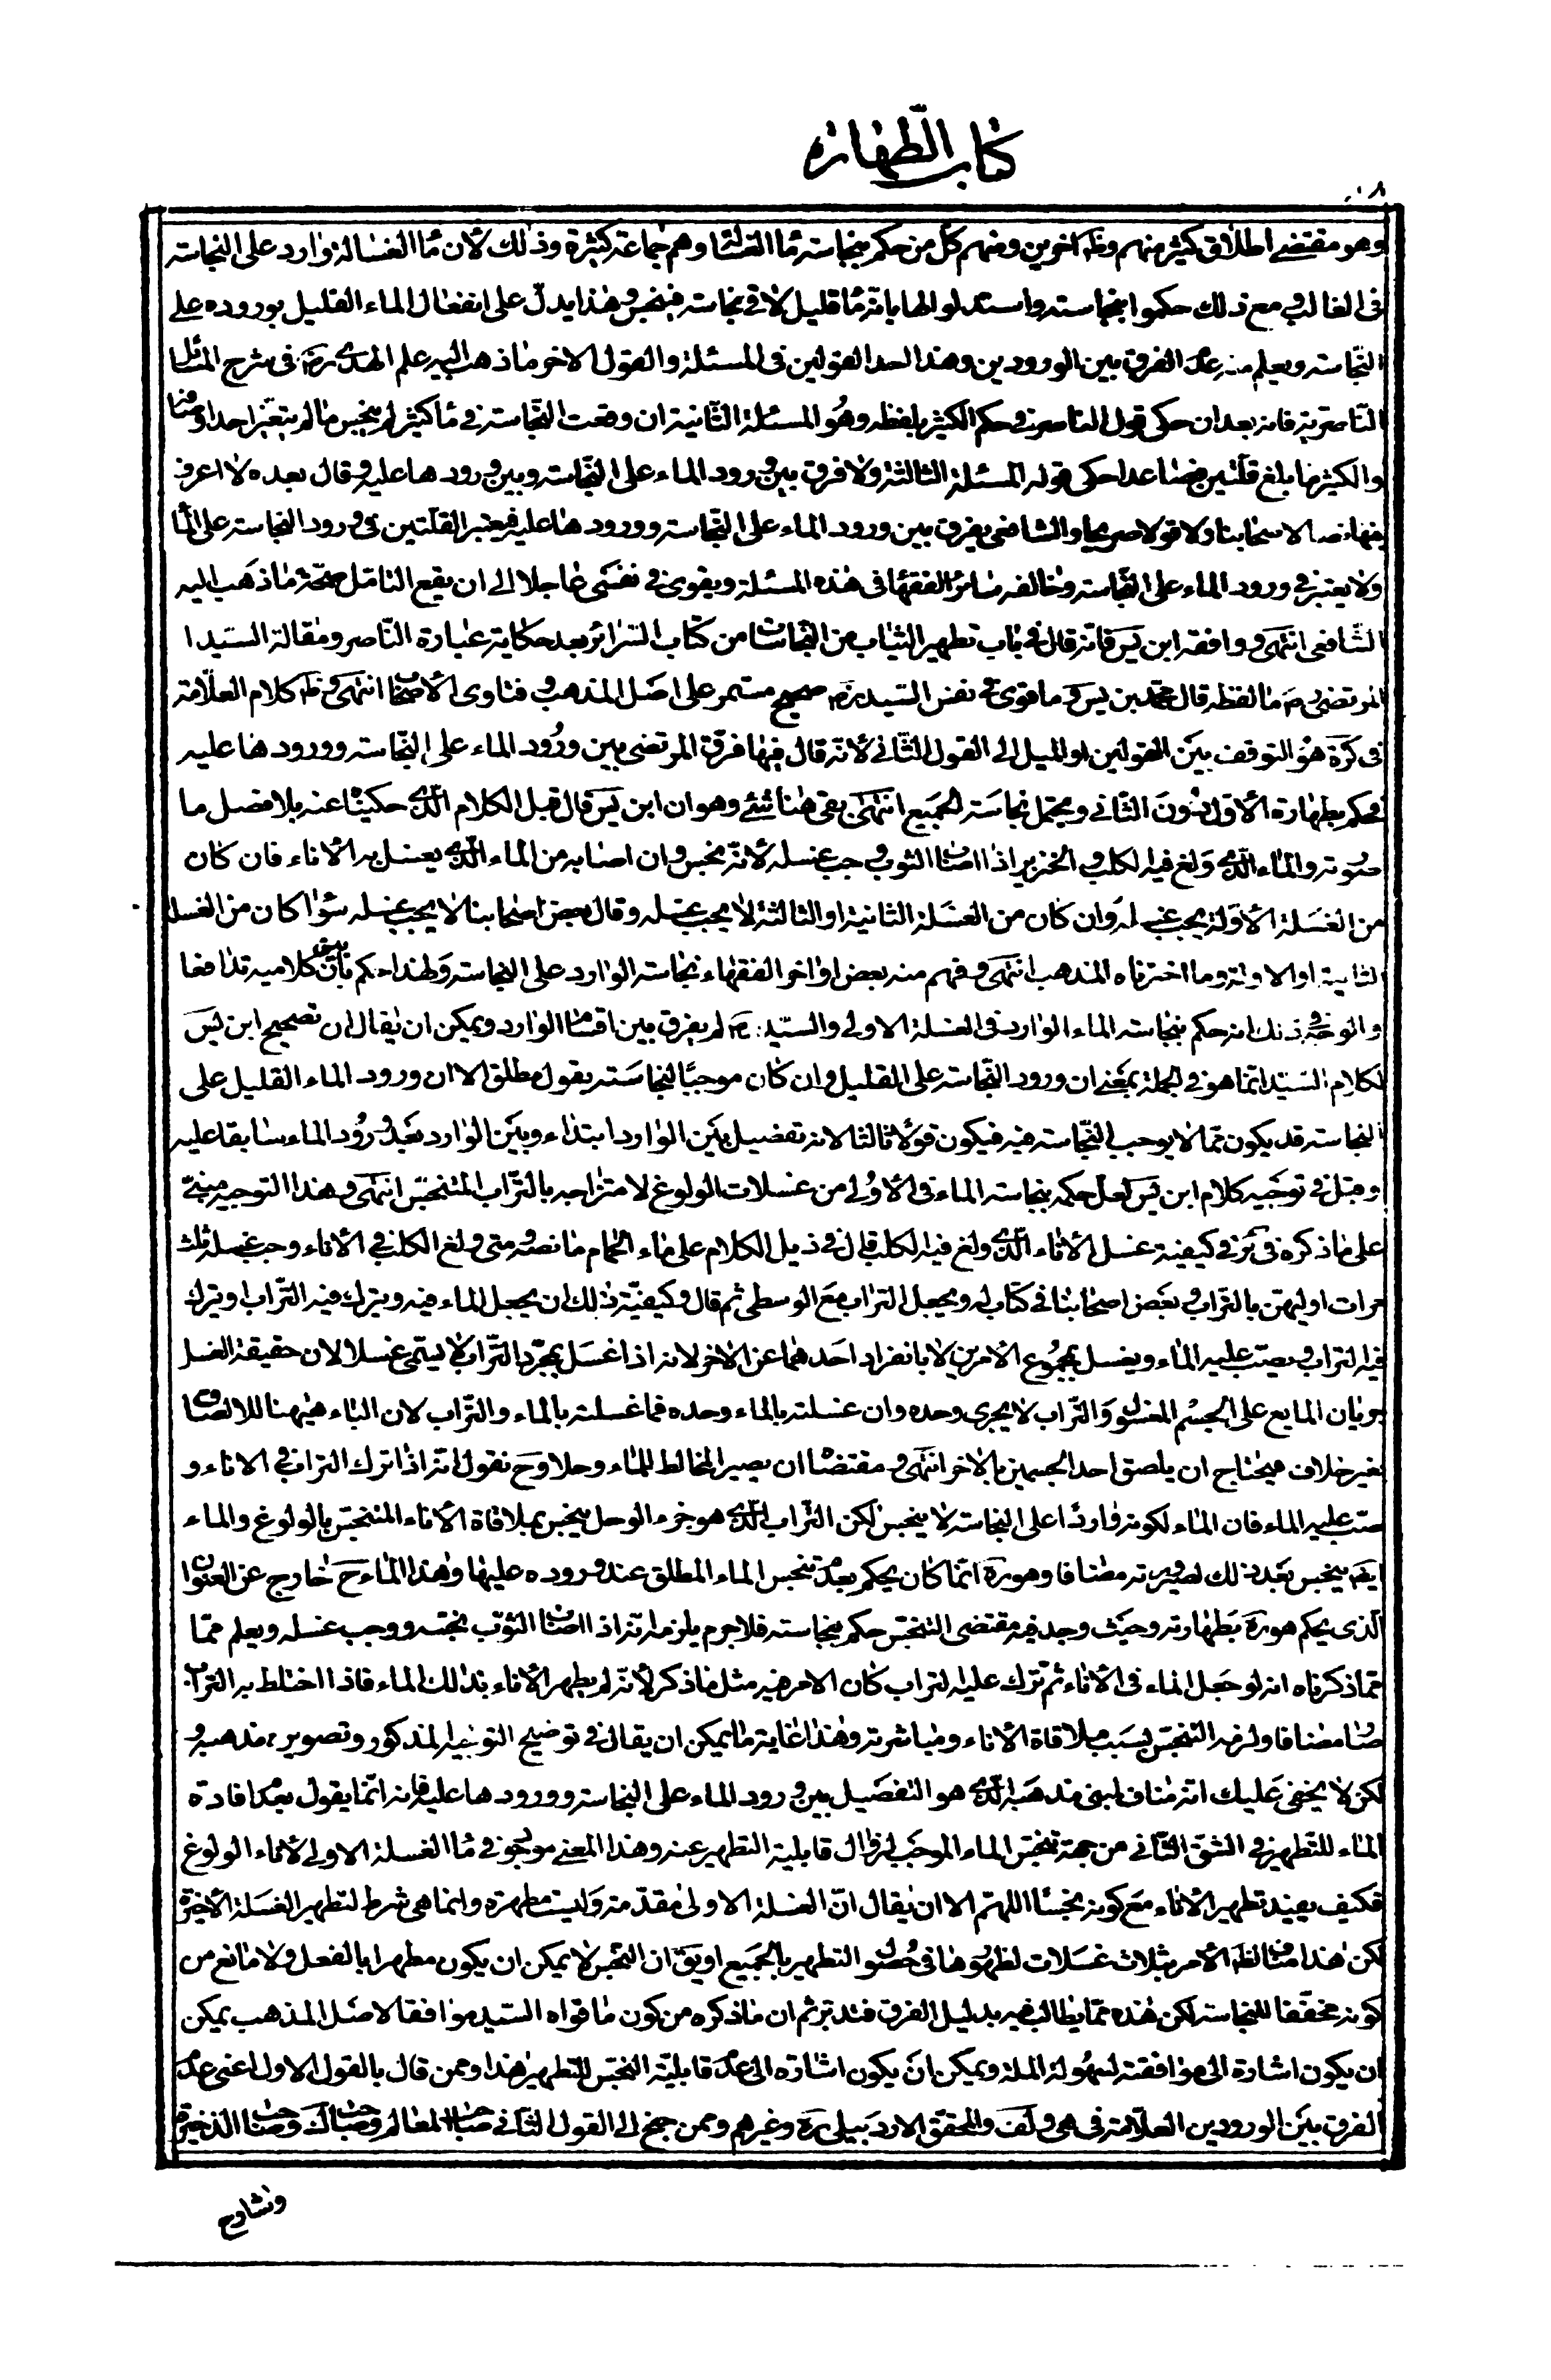 كتاب الطهارة
وهو مقتضى اطلاق كثير منهم وظ اخرين ومنهم كل من حكم بنجاسة ماء الغسالة وهم جماعة كثيرة وذلك لأن ماء الغسالة وارد على النجاسة
فى الغالب ومع ذلك حكموا بنجاسته واستدلوا لها بانه ماء قليل لاقى نجاسة فينجس وهذا يدل على انفعال الماء القليل بوروده على
النجاسة ويعلم منه عدم الفرق بين الورودين وهذا احد القولين فى المسئلة والقول الاخر ما ذهب اليه علم الهدى ره فى شرح المسائل
الناصرية فانه بعد ان حكى قول الناصر فى حكم الكثير بلفظه وهو المسئلة الثانية ان وقعت النجاسة فى ماء كثير لم ينجس ما لم يتغير احد اوصافه
والكثير ما بلغ قلتين فصاعدا حكى قوله المسئلة الثالثة ولا فرق بين ورود الماء على النجاسة وبين ورودها عليه وقال بعده لا اعرف
فيها نصا لاصحابنا ولا قولا صريحا والشافعى يفرق بين ورود الماء على النجاسة وورودها عليه فيعتبر القلتين فى ورود النجاسة على الماء
ولا يعتبر فى ورود الماء على النجاسة وخالفه سائر الفقهاء فى هذه المسئلة ويقوى فى نفسى عاجلا الى ان يقع التامل صحة ما ذهب اليه
الشافعى انتهى ووافقه ابن يس فانه قال فى باب تطهير الثياب من النجاسات من كتاب السرائر بعد حكاية عبارة الناصر ومقالة السيد ا
لمرتضى رم ما لفظه قال محمد بن يس وما قوى فى نفس السيد ره صحيح مستمر على اصل المذهب وفتاوى الأصحاب انتهى وظ كلام العلامة
فى كره هو التوقف بين القولين او الميل الى القول الثانى لأنه قال فيها فرق المرتضى بين ورود الماء على النجاسة وورودها عليه
فحكم بطهارة الأول دون الثانى ويحتمل نجاسة الجميع انتهى بقى هنا شئ وهو ان ابن يس قال قبل الكلام الذى حكيناه عنه بلا فصل ما
صورته والماء الذى ولغ فيه الكلب والخنزير اذا اصاب الثوب وجب غسله لأنه نجس وان اصابه من الماء الذى يغسل به الأناء فان كان
من الغسلة الأولة يجب غسله وان كان من الغسلة الثانية او الثالثة لا يجب غسله وقال بعض اصحابنا لا يجب غسله سواء كان من الغسلة
الثانية او الاولة وما اخترناه المذهب انتهى وفهم منه بعض اواخر الفقهاء نجاسة الوارد على النجاسة ولهذا حكم بان بين كلاميه تدافعا
والوجه فى ذلك انه حكم بنجاسة الماء الوارد فى الغسلة الاولى والسيد رم لم يفرق بين اقسام الوارد ويمكن ان يقال ان تصحيح ابن يس
لكلام السيد انما هو فى الجملة بمعنى ان ورود النجاسة على القليل وان كان موجبا لنجاسته بقول مطلق الا ان ورود الماء القليل على
النجاسة قد يكون مما لا يوجب النجاسة فيه فيكون قولا ثالثا لانه تفصيل بين الوارد ابتداء وبين الوارد بعد ورود الماء سابقا عليه
وقيل فى توجيه كلام ابن يس لعل حكمه بنجاسة الماء فى الأولى من غسلات الولوغ لامتزاجه بالتراب المتنجس انتهى وهذا التوجيه مبنى
على ما ذكره فى ئر فى كيفية غسل الأناء الذى ولغ فيه الكلب قال فى ذيل الكلام على ماء الحمام ما نصه متى ولغ الكلب فى الأناء وجب غسله ثلث
مرات اوليهن بالتراب وبعض اصحابنا فى كتاب له ويجعل التراب مع الوسطى ثم قال وكيفية ذلك ان يجعل الماء فيه ويترك فيه التراب او يترك
فيه التراب ويصب عليه الماء ويغسل بمجموع الامرين لا بانفراد احدهما عن الاخر لانه اذا غسل بمجرد التراب لا يسمى غسلا لان حقيقة الغسل
جريان المايع على الجسم المغسول والتراب لا يجرى وحده وان غسلته بالماء وحده فما غسلته بالماء والتراب لان الباء هيهنا للالصاق
بغير خلاف فيحتاج ان يلصق احد الجسمين بالاخر انتهى ومقتضاه ان يصير المخالط للماء وحلا وح نقول انه اذا ترك التراب فى الاناء و
صب عليه الماء فان الماء لكونه واردا على النجاسة لا ينجس لكن التراب الذى هو جزء الوحل ينجس بملاقاة الأناء المتنجس بالولوغ والماء
ايضا ينجس بعد ذلك لصيرورته مضافا وهو ره انما كان يحكم بعدم تنجس الماء المطلق عند وروده عليها وهذا الماء ح خارج عن العنوان
الذى يحكم هو ره بطهارته وحيث وجد فيه مقتضى التنجس حكم بنجاسته فلا جرم يلزمه انه اذا اصاب الثوب نجسه ووجب غسله ويعلم مما
مما ذكرناه انه لو جعل الماء فى الأناء ثم ترك عليه التراب كان الامر فيه مثل ما ذكر لأنه لم يطهر الأناء بذلك الماء فاذا اختلط به التراب
صار مضافا ولزمه التنجس بسبب ملاقاة الأناء ومباشرته وهذا غاية ما يمكن ان يقال فى توضيح التوجيه المذكور وتصوير مذهبه و
لكن لا يخفى عليك انه مناف لمبنى مذهبه الذى هو التفصيل بين ورود الماء على النجاسة وورودها عليه فانه انما يقول بعدم افادة
الماء للتطهير فى الشق الثانى من جهة تنجس الماء الموجب لزوال قابلية التطهير عنه وهذا المعنى موجود فى ماء الغسلة الاولى لأناء الولوغ
فكيف يفيد تطهير الأناء مع كونه نجسا اللهم الا ان يقال ان الغسلة الاولى مقدمة وليست مطهرة وانما هى شرط لتطهير الغسلة الأخيرة
لكن هذا مناف لظ الأمر بثلاث غسلات لظهورها فى حصول التطهير بالجميع او يق ان النجس لا يمكن ان يكون مطهرا بالفعل ولا مانع من
كونه مخففا للنجاسة لكن هذه مما يطالب فيه بدليل الفرق فتدبر ثم ان ما ذكره من كون ما قواه السيد موافقا لاصل المذهب يمكن
ان يكون اشارة الى موافقته لسهولة الملة ويمكن ان يكون اشارة الى عدم قابلية النجس للتطهير هذا وممن قال بالقول الاول اعنى عدم
الفرق بين الورودين العلامة فى هى ولف والمحقق الاردبيلى ره وغيرهم وممن جنح الى القول الثانى صاحب المعالم وصاحب ك وصاحب الذخيرة
وشارح